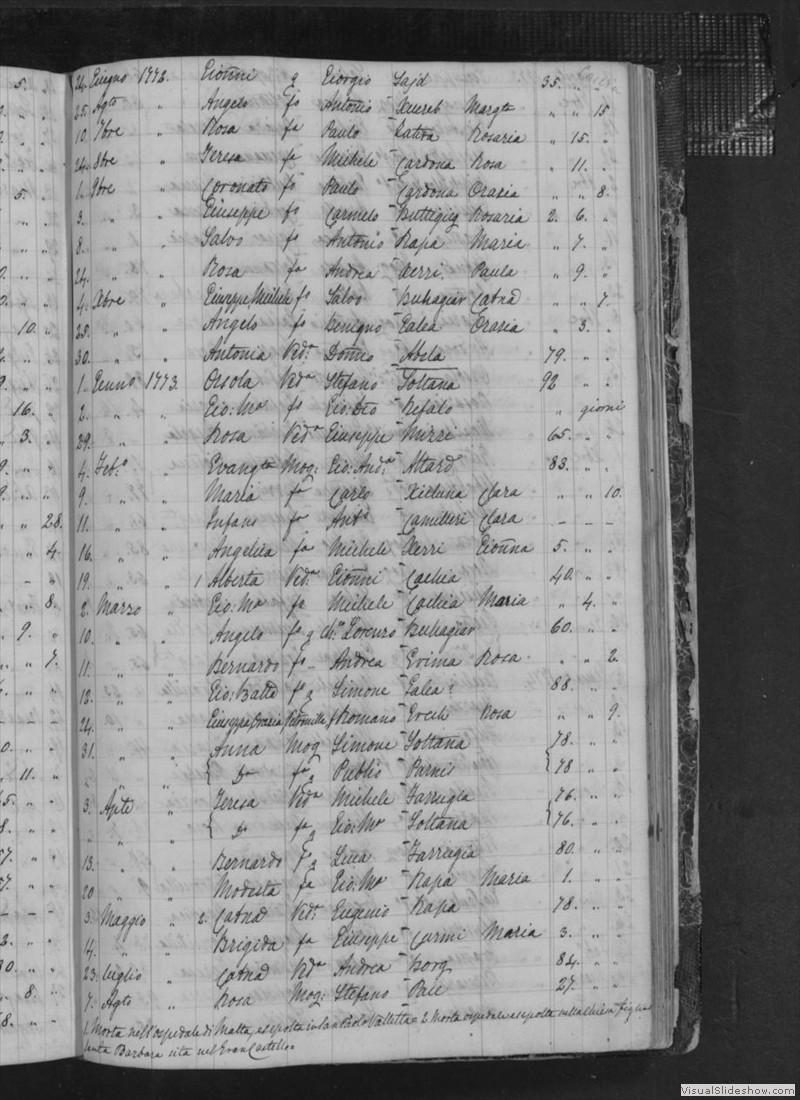 5.
24. Giugno 1772. Gionni q Giorgio Sajd 35. " "
25. Agto " Angelo fo Antonio Xuereb Margta " " 15
10. 7bre " Rosa fa Paulo Rosaria " 15. "
24. 8bre " Teresa fa Michele Cardona Rosa " 11. "
1. 9bre " Coronato fo Paulo Cardona Orasia " " 8.
3. " " Giuseppe fo Carmelo Buttigieg Rosaria 2. 6. "
8. " " Salvo fo Antonio Rapa Maria " 7. "
24. " " Rosa fa Andrea Xerri Paula " 9. "
4. Xbre " Giuseppe, Michele fo Salvo Buhagiar Catna " " 7.
25. " " Angelo fo Benigno Galea Orasia " 3. "
30. " " Antonia Veda Domco Abela 79. " "
1. Genno 1773. Orsola Veda Stefano Soltana 92 " "
2. " " Gio: Ma fo Gio: Bto Refalo " giorni
29. " " Rosa Veda Giuseppe Mizzi 65. " "
4. Feb:o " Evangta Mog: Gio: Anda Attard 83. " "
9. " " Maria fa Carlo Xicluna Clara " " 10.
11. " " Infans fa Anto Camilleri Clara – – –
16. " " Angelica fa Michele Xerri Gionna 5. " "
19. " " 1 Alberta Veda Gionni Cachia 40. " "
2. Marzo " Gio: Ma fa Michele Cachia Maria " 4. "
10. " " Angelo fo q Lorenzo Buhagiar 60. " "
11. " " Bernardo fo – Andrea Grima Rosa " " 2.
12. " " Gio: Batta fo q Simone Galea 88. " "
24. " " Giuseppa, Grazia Petronilla f Romano Ercole Rosa " " 9.
31. " " Anna Mog Simone Soltana 78. " "
" " { Da fa q Publio Parnis { 78 " "
3. Aple " Teresa Veda Michele Farrugia 76. " "
" " { Da fa q Gio: Ma Soltana { 76. " "
13. " " Bernardo fo q Luca Farrugia 80. " "
20 " " Modesta fa Gio: Ma Rapa Maria 1. " "
3. Maggio " 2. Catna Veda Eugenio Rapa 78. " "
14. " " Brigida fa Giuseppe Maria 3. " "
23. Luglio " Catna Veda Andrea Borg 84. " "
7. Agto " Rosa Mog: Stefano Pace 27. " "
1. Morta nell'ospedale di Malta, e sepolta in San Paolo Valletta = 2. Morta ospedale e sepolta nella chiesa
Santa Barbara sita nel Gran Castello.
VisualSlideshow.com